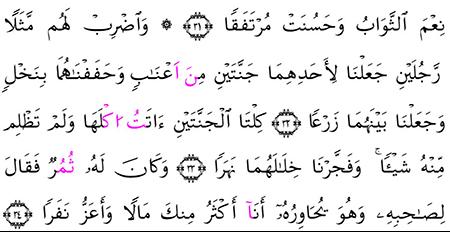 نِعْمَ ٱلثَّوَابُ وَحَسُنَتْ مُرْتَفَقًا ٣١ ۞ وَٱضْرِبْ لَهُم مَّثَلًا
رَّجُلَيْنِ جَعَلْنَا لِأَحَدِهِمَا جَنَّتَيْنِ مِنَ اَعْنَٰبٍ وَحَفَفْنَٰهُمَا بِنَخْلٍ
وَجَعَلْنَا بَيْنَهُمَا زَرْعًا ٣٢ كِلْتَا ٱلْجَنَّتَيْنِ ءَاتَتُ اكْلَهَا وَلَمْ تَظْلِم
مِّنْهُ شَيْـًٔا ۚ وَفَجَّرْنَا خِلَٰلَهُمَا نَهَرًا ٣٣ وَكَانَ لَهُۥ ثُمُرٌ فَقَالَ
لِصَٰحِبِهِۦ وَهُوَ يُحَاوِرُهُۥٓ أَنَآ أَكْثَرُ مِنكَ مَالًا وَأَعَزُّ نَفَرًا ٣٤